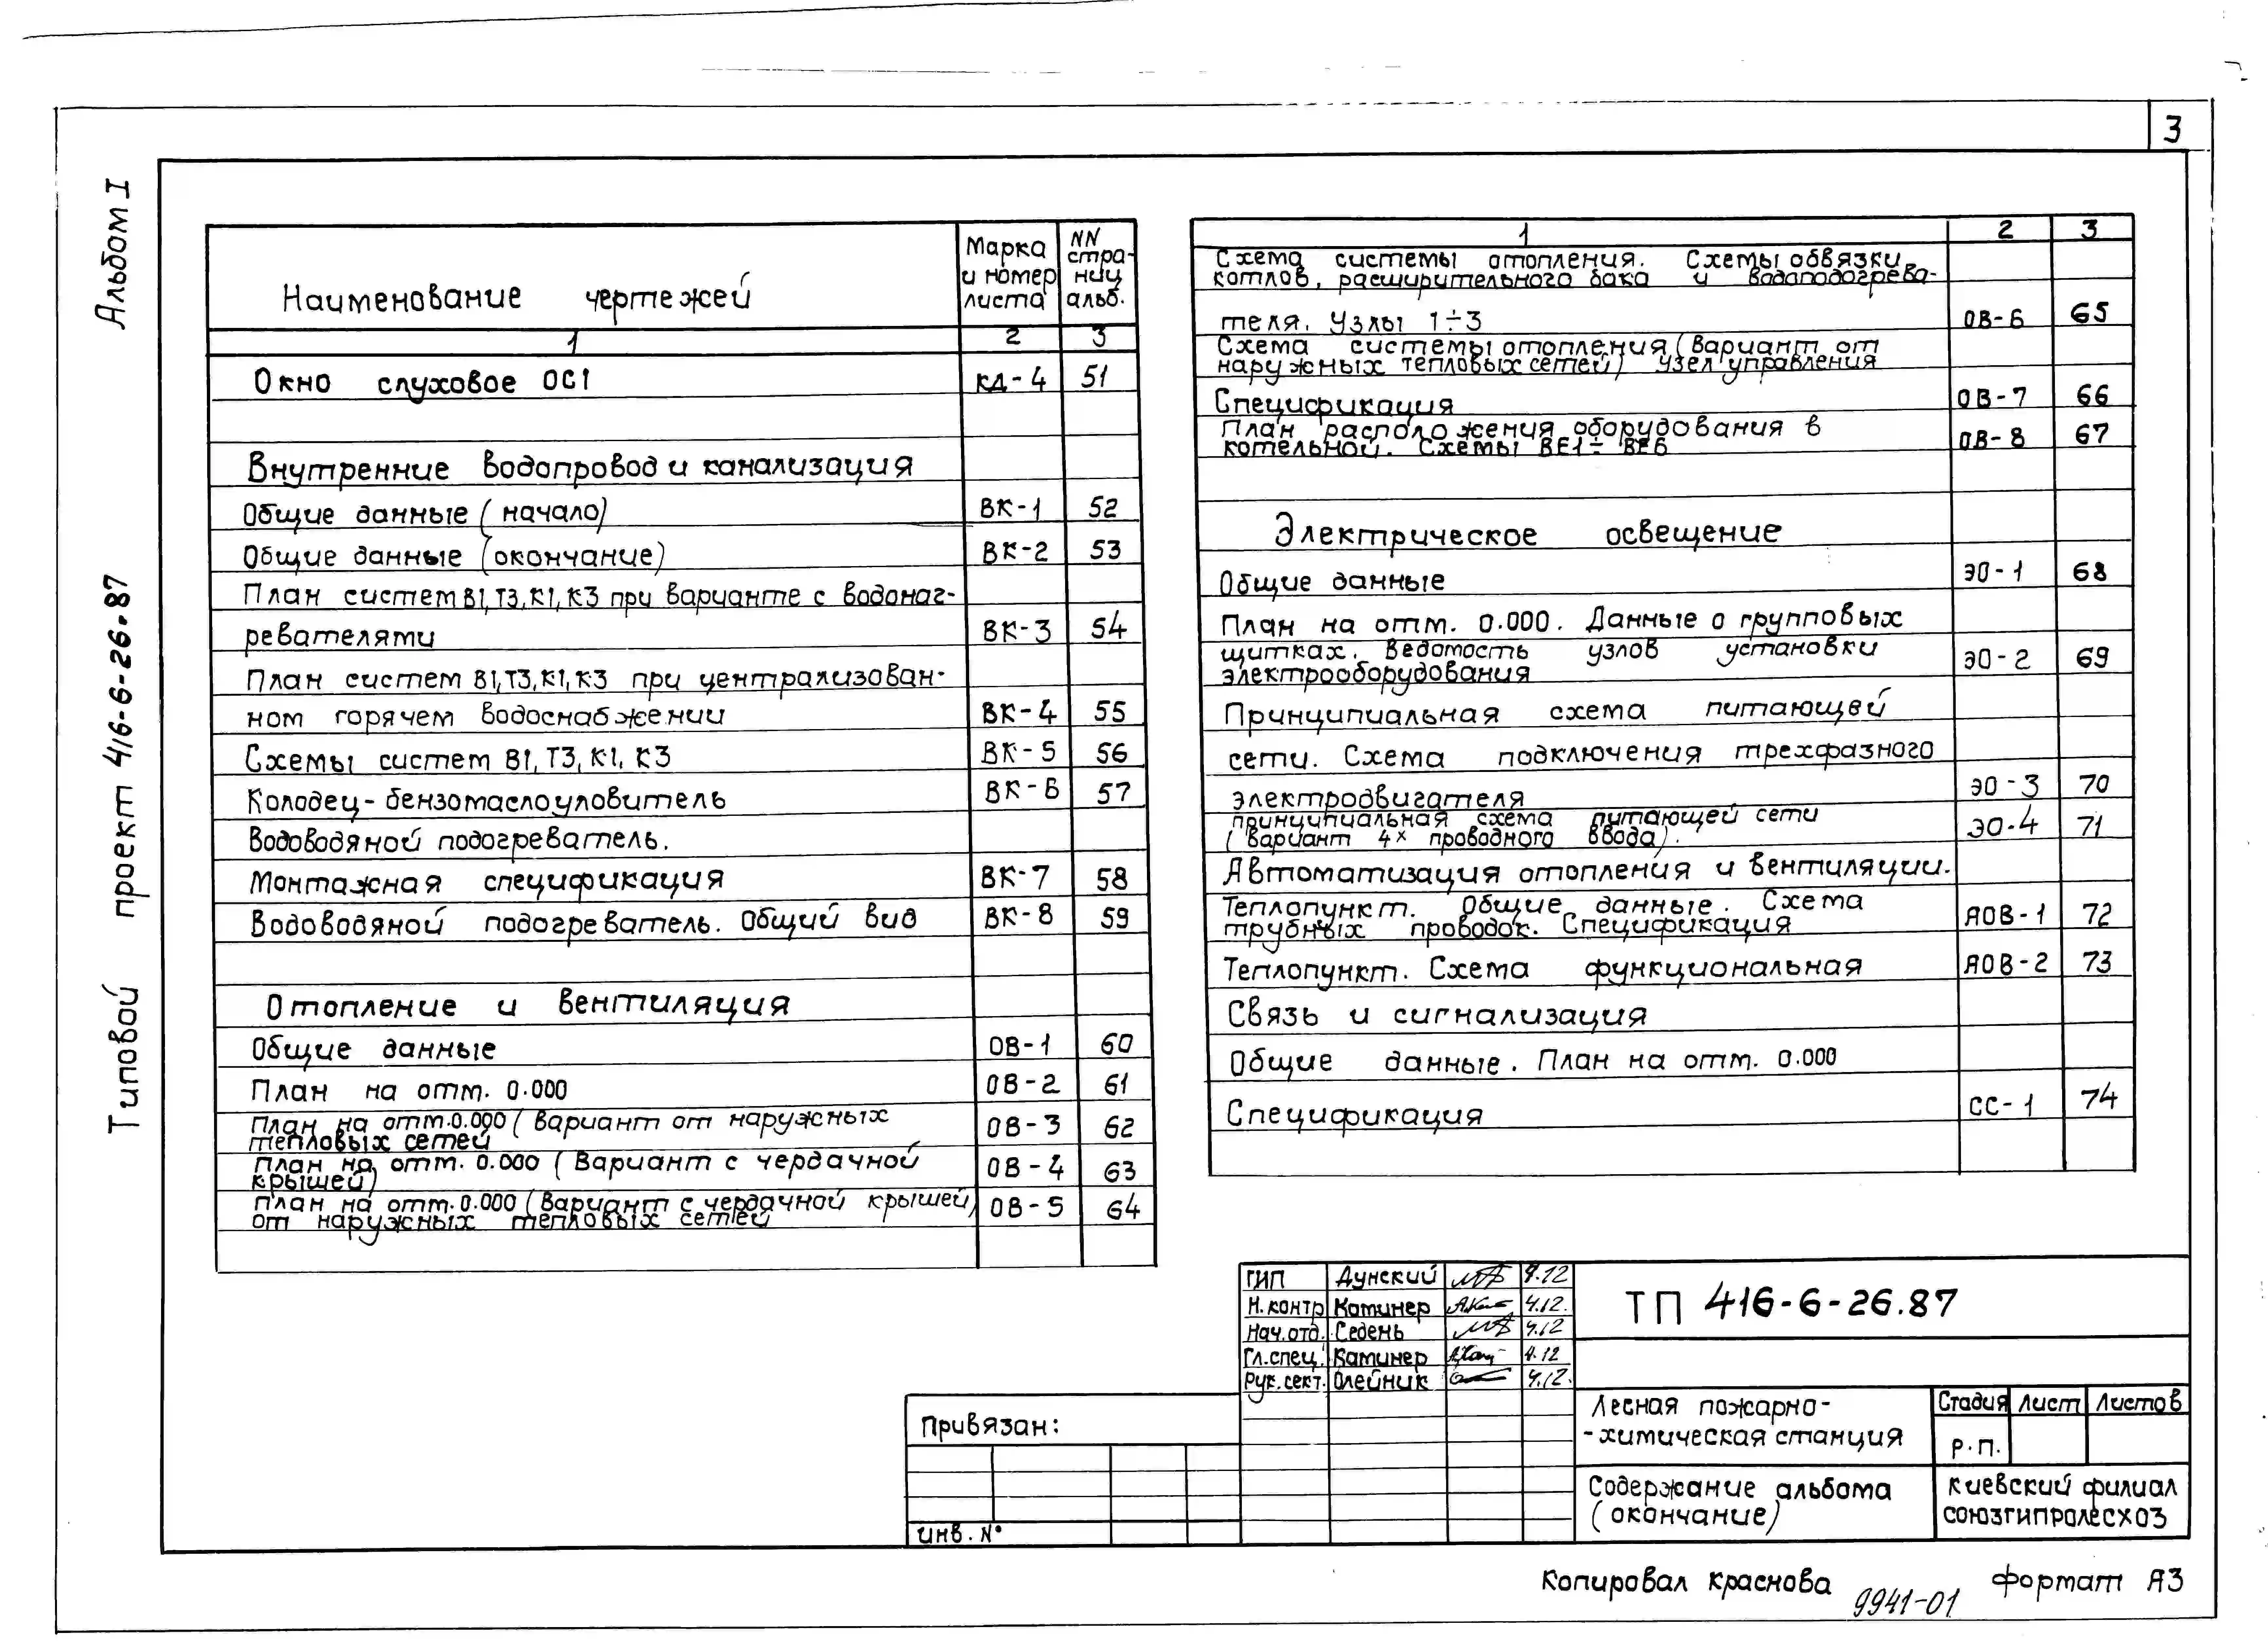 3
Альбом I
Типовой проект 416-6-26.87
Наименование чертежей | Марка и номер листа | NN страниц альб.
1 | 2 | 3
Окно слуховое ОС1 | КД-4 | 51
Внутренние водопровод и канализация
Общие данные (начало) | ВК-1 | 52
Общие данные (окончание) | ВК-2 | 53
План систем В1,Т3,К1,К3 при варианте с водонаг-
ревателями | ВК-3 | 54
План систем В1,Т3,К1,К3 при централизован-
ном горячем водоснабжении | ВК-4 | 55
Схемы систем В1,Т3,К1,К3 | ВК-5 | 56
Колодец-бензомаслоуловитель | ВК-6 | 57
Водоводяной подогреватель.
Монтажная спецификация | ВК-7 | 58
Водоводяной подогреватель. Общий вид | ВК-8 | 59
Отопление и вентиляция
Общие данные | ОВ-1 | 60
План на отм. 0.000 | ОВ-2 | 61
План на отм.0.000 (Вариант от наружных
тепловых сетей | ОВ-3 | 62
План на отм. 0.000 (Вариант с чердачной
крышей) | ОВ-4 | 63
План на отм.0.000 (Вариант с чердачной крышей)
от наружных тепловых сетей | ОВ-5 | 64
1 | 2 | 3
Схема системы отопления. Схемы обвязки
котлов, расширительного бака и водоподогрева-
теля. Узлы 1÷3 | ОВ-6 | 65
Схема системы отопления (Вариант от
наружных тепловых сетей) Узел управления
Спецификация | ОВ-7 | 66
План расположения оборудования в
котельной. Схемы ВЕ1÷ВЕ6 | ОВ-8 | 67
Электрическое освещение
Общие данные | ЭО-1 | 68
План на отм. 0.000. Данные о групповых
щитках. Ведомость узлов установки
электрооборудования | ЭО-2 | 69
Принципиальная схема питающей
сети. Схема подключения трехфазного
электродвигателя | ЭО-3 | 70
Принципиальная схема питающей сети
(Вариант 4х проводного ввода). | ЭО-4 | 71
Автоматизация отопления и вентиляции.
Теплопункт. Общие данные. Схема
трубных проводок. Спецификация | АОВ-1 | 72
Теплопункт. Схема функциональная | АОВ-2 | 73
Связь и сигнализация
Общие данные. План на отм. 0.000
Спецификация | СС-1 | 74
ГИП Дунский 4.12
Н.контр Каминер 4.12.
Нач.отд. Седень 4.12
Гл.спец. Каминер 4.12
Рук.сект. Олейник 4.12.
Привязан:
Инв. №
ТП 416-6-26.87
Лесная пожарно-
-химическая станция
Стадия Лист Листов
Р.П.
Содержание альбома
(окончание)
Киевский филиал
союзгипролесхоз
Копировал Краснова
9941-01
Формат А3